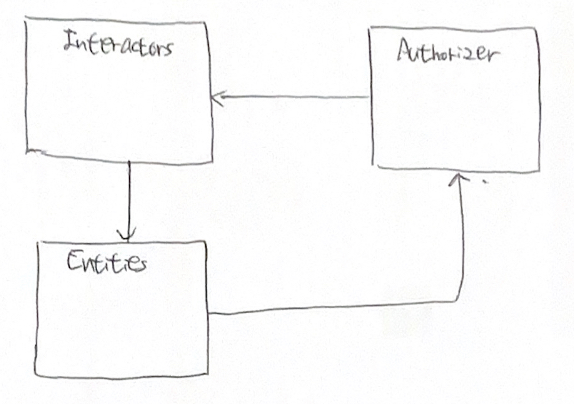 Interactors
Authorizer
Entities